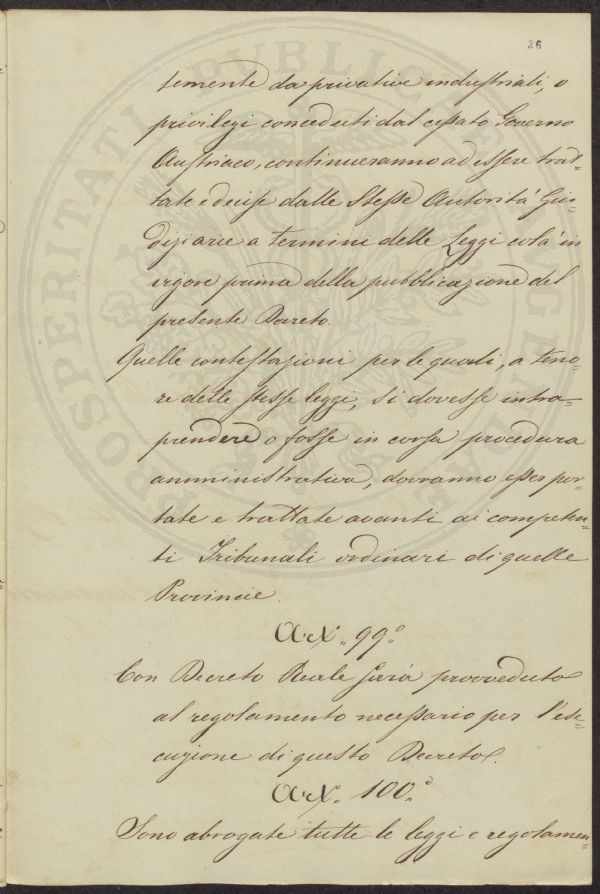 36
temente da privative industriali, o
privilegi conceduti dal cessato Governo
Austriaco, continueranno ad essere trat=
tate e decise dalle Stesse Autorità Giu=
diziarie a termini delle Leggi colà in
vigore prima della pubblicazione del
presente Decreto.
Quelle contestazioni per le quali, a teno=
re delle stesse leggi, si dovesse intra=
prendere o fosse in corso procedura
amministrativa, dovranno esser por=
tate e trattate avanti ai competen=
ti Tribunali ordinari di quelle
Provincie.
Art. 99.°
Con Decreto Reale sarà provveduto
al regolamento necessario per l'ese=
cuzione di questo Decreto.
Art. 100.°
Sono abrogate tutte le leggi e regolamen=
PROSPERITATI PVBLICAE AVGENDAE